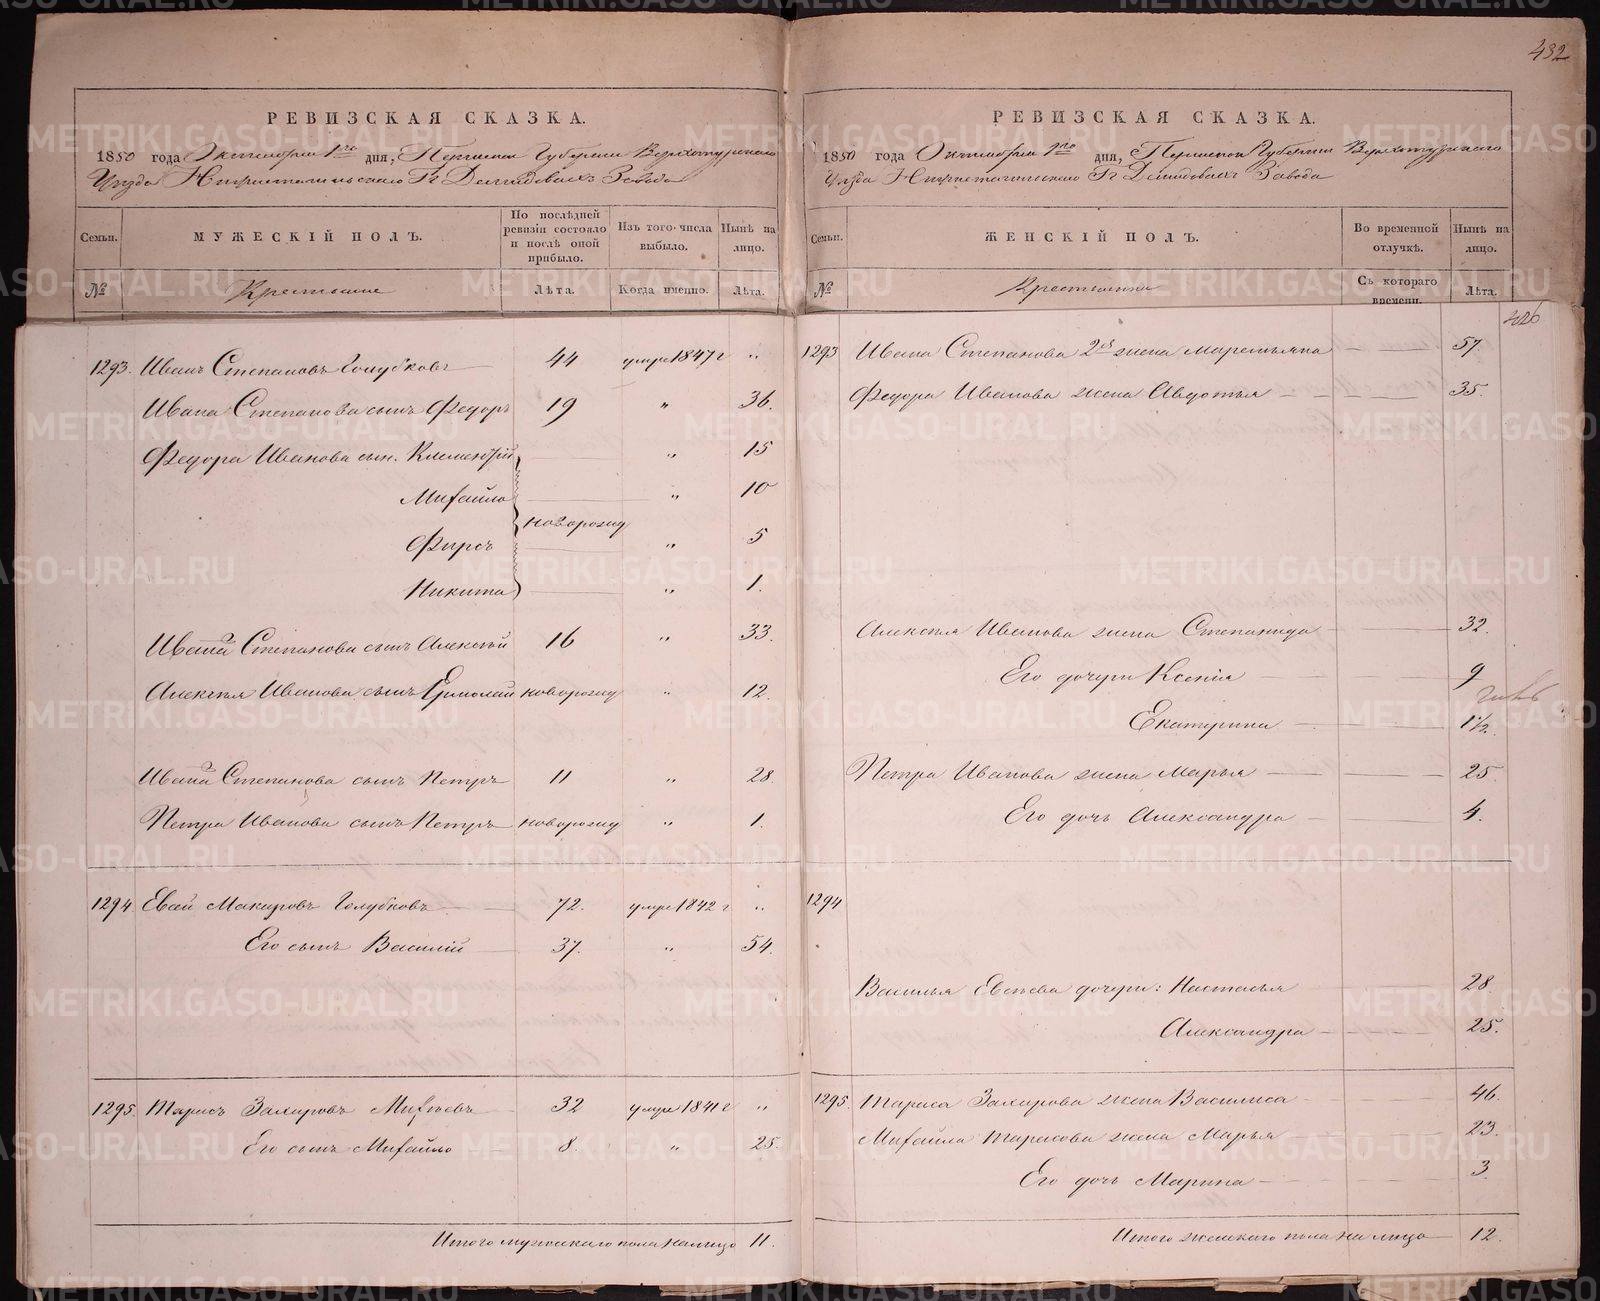 432
РЕВИЗСКАЯ СКАЗКА.
1850 года Октября 1го дня, Пермской Губернии Верхотурского
Уезда Нижнетагильского Гг Демидовых Завода
Семьи. МУЖЕСКІЙ ПОЛЪ. По послѣдней ревизіи состояло и послѣ оной прибыло. Изъ того числа выбыло. Нынѣ на лицо.
№ Крестьяне Лѣта. Когда именно. Лѣта.
1293. Иванъ Степановъ Голубковъ 44 умре 1847 г „
Ивана Степанова сынъ Федоръ 19 „ 36.
Федора Иванова сын. Клементій „ 15
Михайло „ 10
новорожд
Фирсъ „ 5
Никита „ 1.
Ивана Степанова сынъ Алексѣй 16 „ 33.
Алексѣя Иванова сынъ Ермолай новорожд „ 12.
Ивана Степанова сынъ Петръ 11 „ 28.
Петра Иванова сынъ Петръ новорожд „ 1.
1294 Евсѣй Макаровъ Голубковъ 72. умре 1842 г „
Его сынъ Василій 37. „ 54.
1295. Тарасъ Захаровъ Михѣевъ 32 умре 1841 г „
Его сынъ Михайло 8. „ 25.
Итого мужескаго пола налицо 11.
РЕВИЗСКАЯ СКАЗКА.
1850 года Октября 1го дня, Пермской Губернии Верхотурского
Уезда Нижнетагильского Гг Демидовыхъ Завода
Семьи. ЖЕНСКІЙ ПОЛЪ. Во временной отлучкѣ. Нынѣ на лицо.
№ Крестьянки Съ котораго времени. Лѣта.
426
1293 Ивана Степанова 2я жена Маремьяна 57.
Федора Иванова жена Авдотья 35.
Алексѣя Иванова жена Степанида 32.
Его дочери Ксенія 9
Екатерина 1 1/2.
Петра Иванова жена Марья 25.
Его дочь Александра 4.
1294
Василья Евсѣева дочери: Настасья 28
Александра 25.
1295. Тараса Захарова жена Василиса 46.
Михайла Тарасова жена Марья 23.
Его дочь Марина 3.
Итого женскаго пола на лицо 12.
METRIKI.GASO-URAL.RU